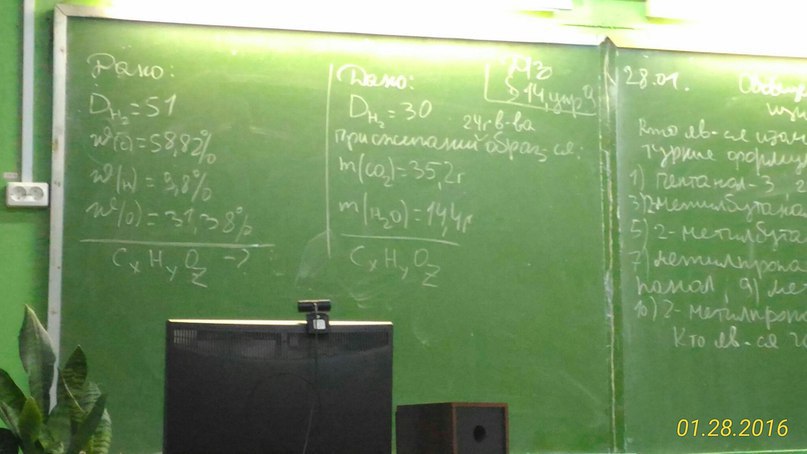 Дано:
D H₂ = 51
w(C) = 58,82%
w(H) = 9,8%
w(O) = 31,38%
CxHyOz - ?
Дано:
D H₂ = 30
24г в-ва
При сжигании образ-ся:
m(CO₂) = 35,2г
m(H₂O) = 14,4г
CxHyOz
ДЗ
§14, упр
28.01.
Кто яв-ся
1) Пентанол-3
3) 2метилбута
5) 2-метилбута
7) метилпропа
9) ме
10) 2-метилпропа
Кто яв-ся
01.28.2016